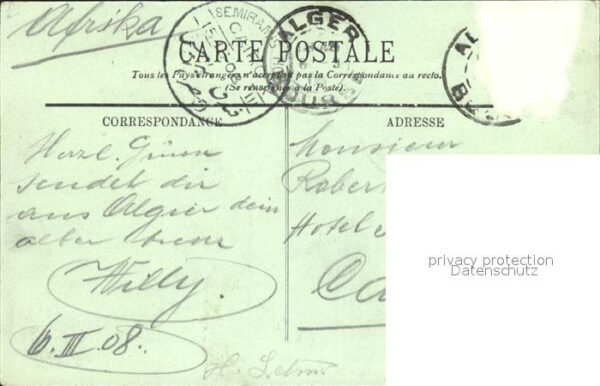 Afrika
CARTE POSTALE
Tous les Pays étrangers n'acceptent pas la Correspondance au recto.
(Se renseigner à la Poste).
SEMIRAMIS
ALGER
CORRESPONDANCE
ADRESSE
Herzl.
sendet dir
aus Algier dein
alter
Willy.
6. III. 08.
Monsieur
Robert
Hotel
Ca
privacy protection
Datenschutz